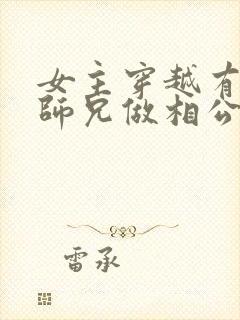 女主穿越有
師兄做相公
雷承